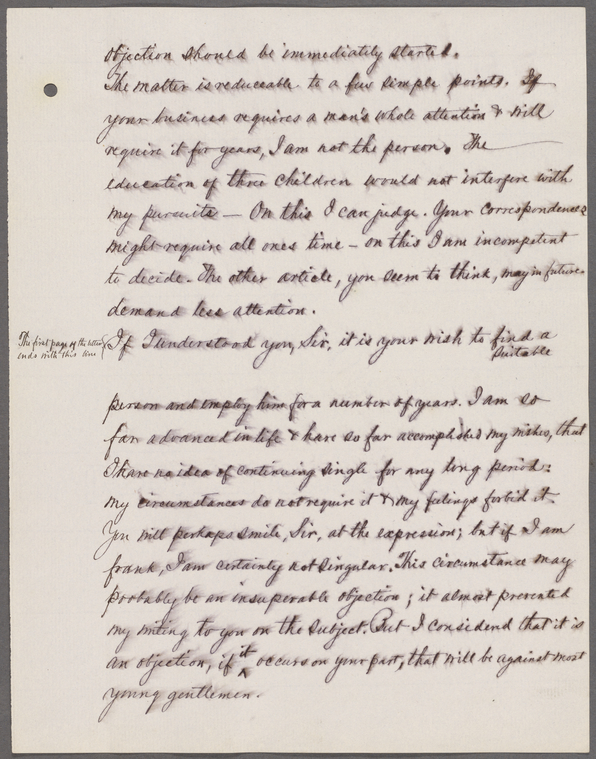 objection should be immediately started.
The matter is reduceable to a few simple points. If
your business requires a man's whole attention & will
require it for years, I am not the person. The
education of three children would not interfere with
my pursuits — On this I can judge. Your Correspondence
might require all ones time — on this I am incompetent
to decide. The other article, you seem to think, may in future
demand less attention.
The first page of the letter
ends with this line
If I understood you, Sir, it is your wish to find a
suitable
person and employ him for a number of years. I am so
far advanced in life & have so far accomplished my wishes, that
I have no idea of continuing single for any long period:
my circumstances do not require it & my feelings forbid it.
You will perhaps smile, Sir, at the expression; but if I am
frank, I am certainly not singular. This circumstance may
probably be an insuperable objection; it almost prevented
my writing to you on the subject. But I considerd that it is
an objection, if it occurs on your part, that will be against most
young gentlemen.